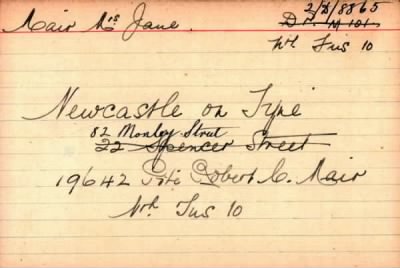 Mair Mrs Jane.
2/D/8865
D M 101
Nth Fus 10
Newcastle on Tyne
82 Monley Street
22 Spencer Street
19642 Pte Robert C. Mair
Nth Fus 10